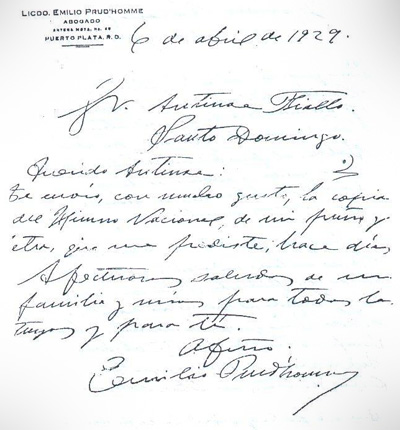 LICDO. EMILIO PRUD'HOMME
ABOGADO
ANTERA MOTA, No. 48
PUERTO PLATA, R.D.
6 de abril de 1929.
Sr. Antinoe Fiallo.
Santo Domingo.
Querido Antinoe:
Te envío, con mucho gusto, la copia
del Himno Nacional, de mi puño y
letra, que me pediste, hace días.
Afectuosos saludos de mi
familia y míos para todos los
tuyos y para tí.
Afmo.
Emilio Prud'homme